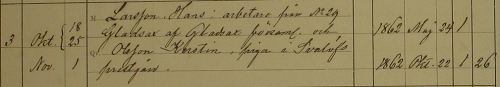 " Larsson, Hans, arbetare från No 29
3 Okt. { 18 25 Gladsax af Gladsax församl. och 1862 Maj 24 1
" Olsson Kerstin, piga i Svalöfs
Nov. 1 prestgård. 1862 Okt. 22 1 26